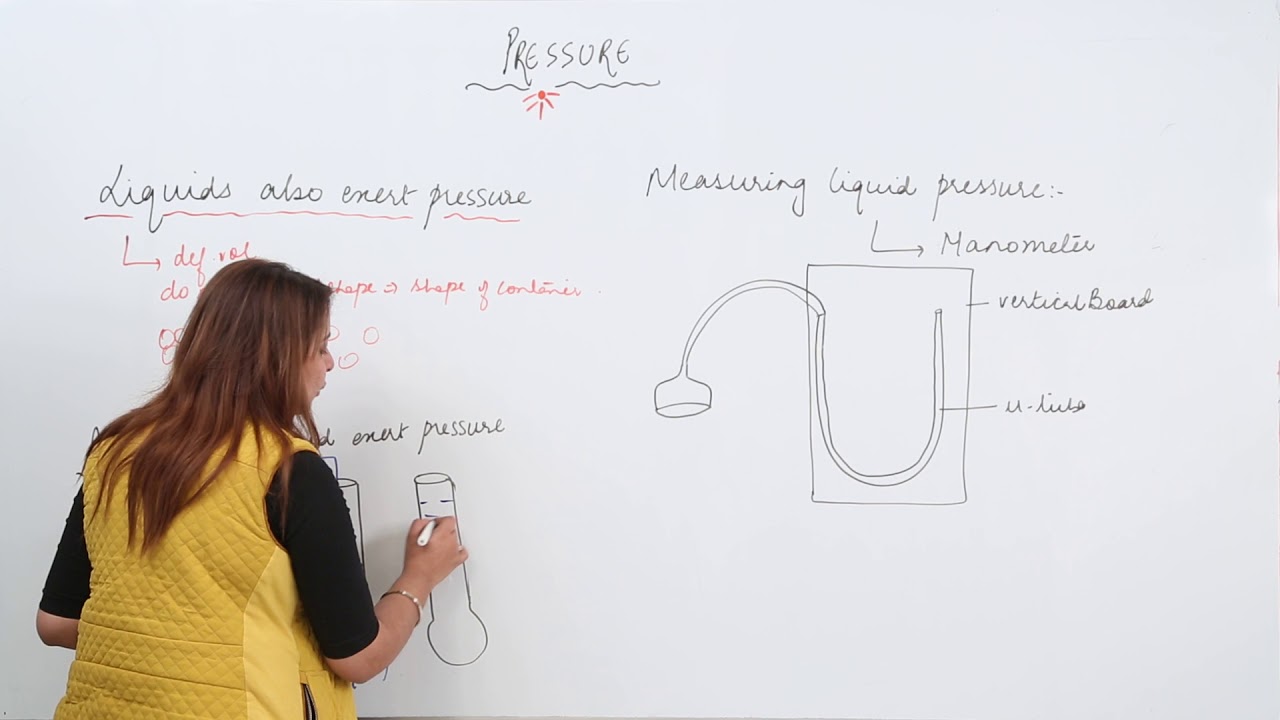 PRESSURE
Liquids also exert pressure
def. vol
do shape → shape of container.
exert pressure
Measuring liquid pressure:-
Manometer
vertical Board
U-tube